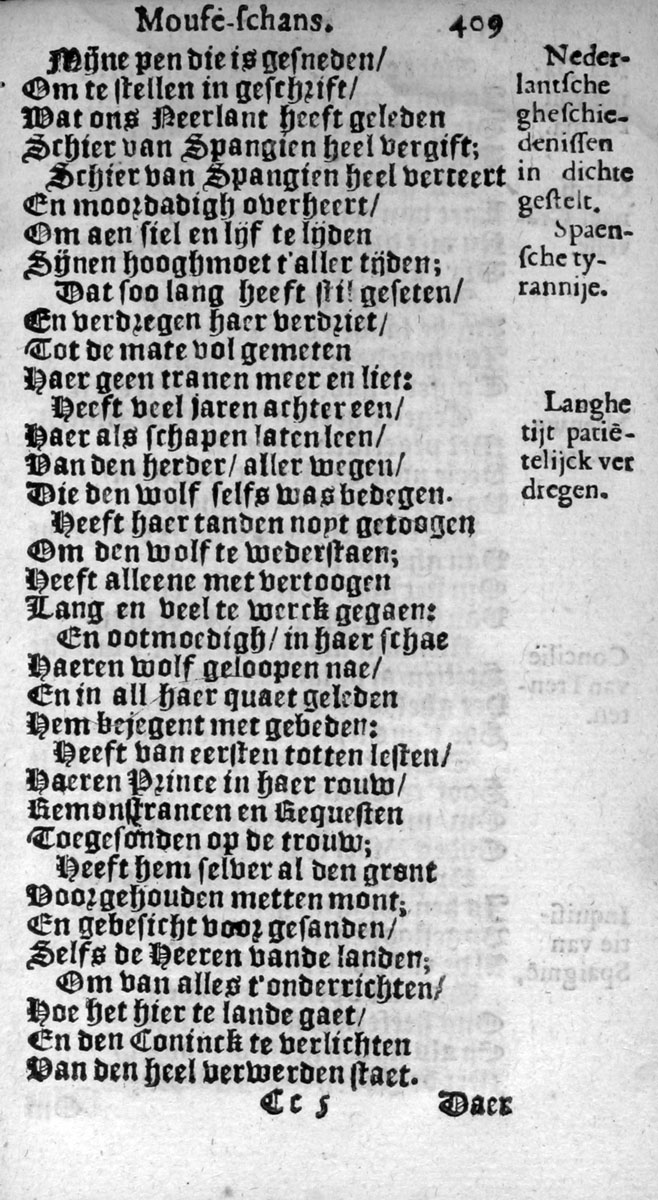 Mouse-schans. 409
Mijne pen die is gesneden/
Om te stellen in geschrift/
Wat ons Neerlant heeft geleden
Schier van Spangien heel vergift;
Schier van Spangien heel verteert
En moordadigh overheert/
Om aen siel en lijf te lijden
Sijnen hooghmoet t'aller tijden;
Dat soo lang heeft stil geseten/
En verdregen haer verdriet/
Tot de mate vol gemeten
Haer geen tranen meer en liet:
Heeft veel jaren achter een/
Haer als schapen laten leen/
Van den herder/ aller wegen/
Die den wolf selfs was bedegen.
Heeft haer tanden noyt getoogen
Om den wolf te wederstaen;
Heeft alleene met vertoogen
Lang en veel te werck gegaen:
En ootmoedigh/ in haer schae
Haeren wolf geloopen nae/
En in all haer quaet geleden
Hem bejegent met gebeden:
Heeft van eersten totten lesten/
Haeren Prince in haer rouw/
Remonstrancen en Requesten
Toegesonden op de trouw;
Heeft hem selver al den gront
Voorgehouden metten mont;
En gebesicht voor gesanden/
Selfs de Heeren vande landen;
Om van alles t'onderrichten/
Hoe het hier te lande gaet/
En den Coninck te verlichten
Van den heel verwerden staet.
Cc 5 Daer
Neder-
lantsche
gheschie-
denissen
in dichte
gestelt.
Spaen-
sche ty-
rannije.
Langhe
tijt patiē-
telijck ver
dregen.